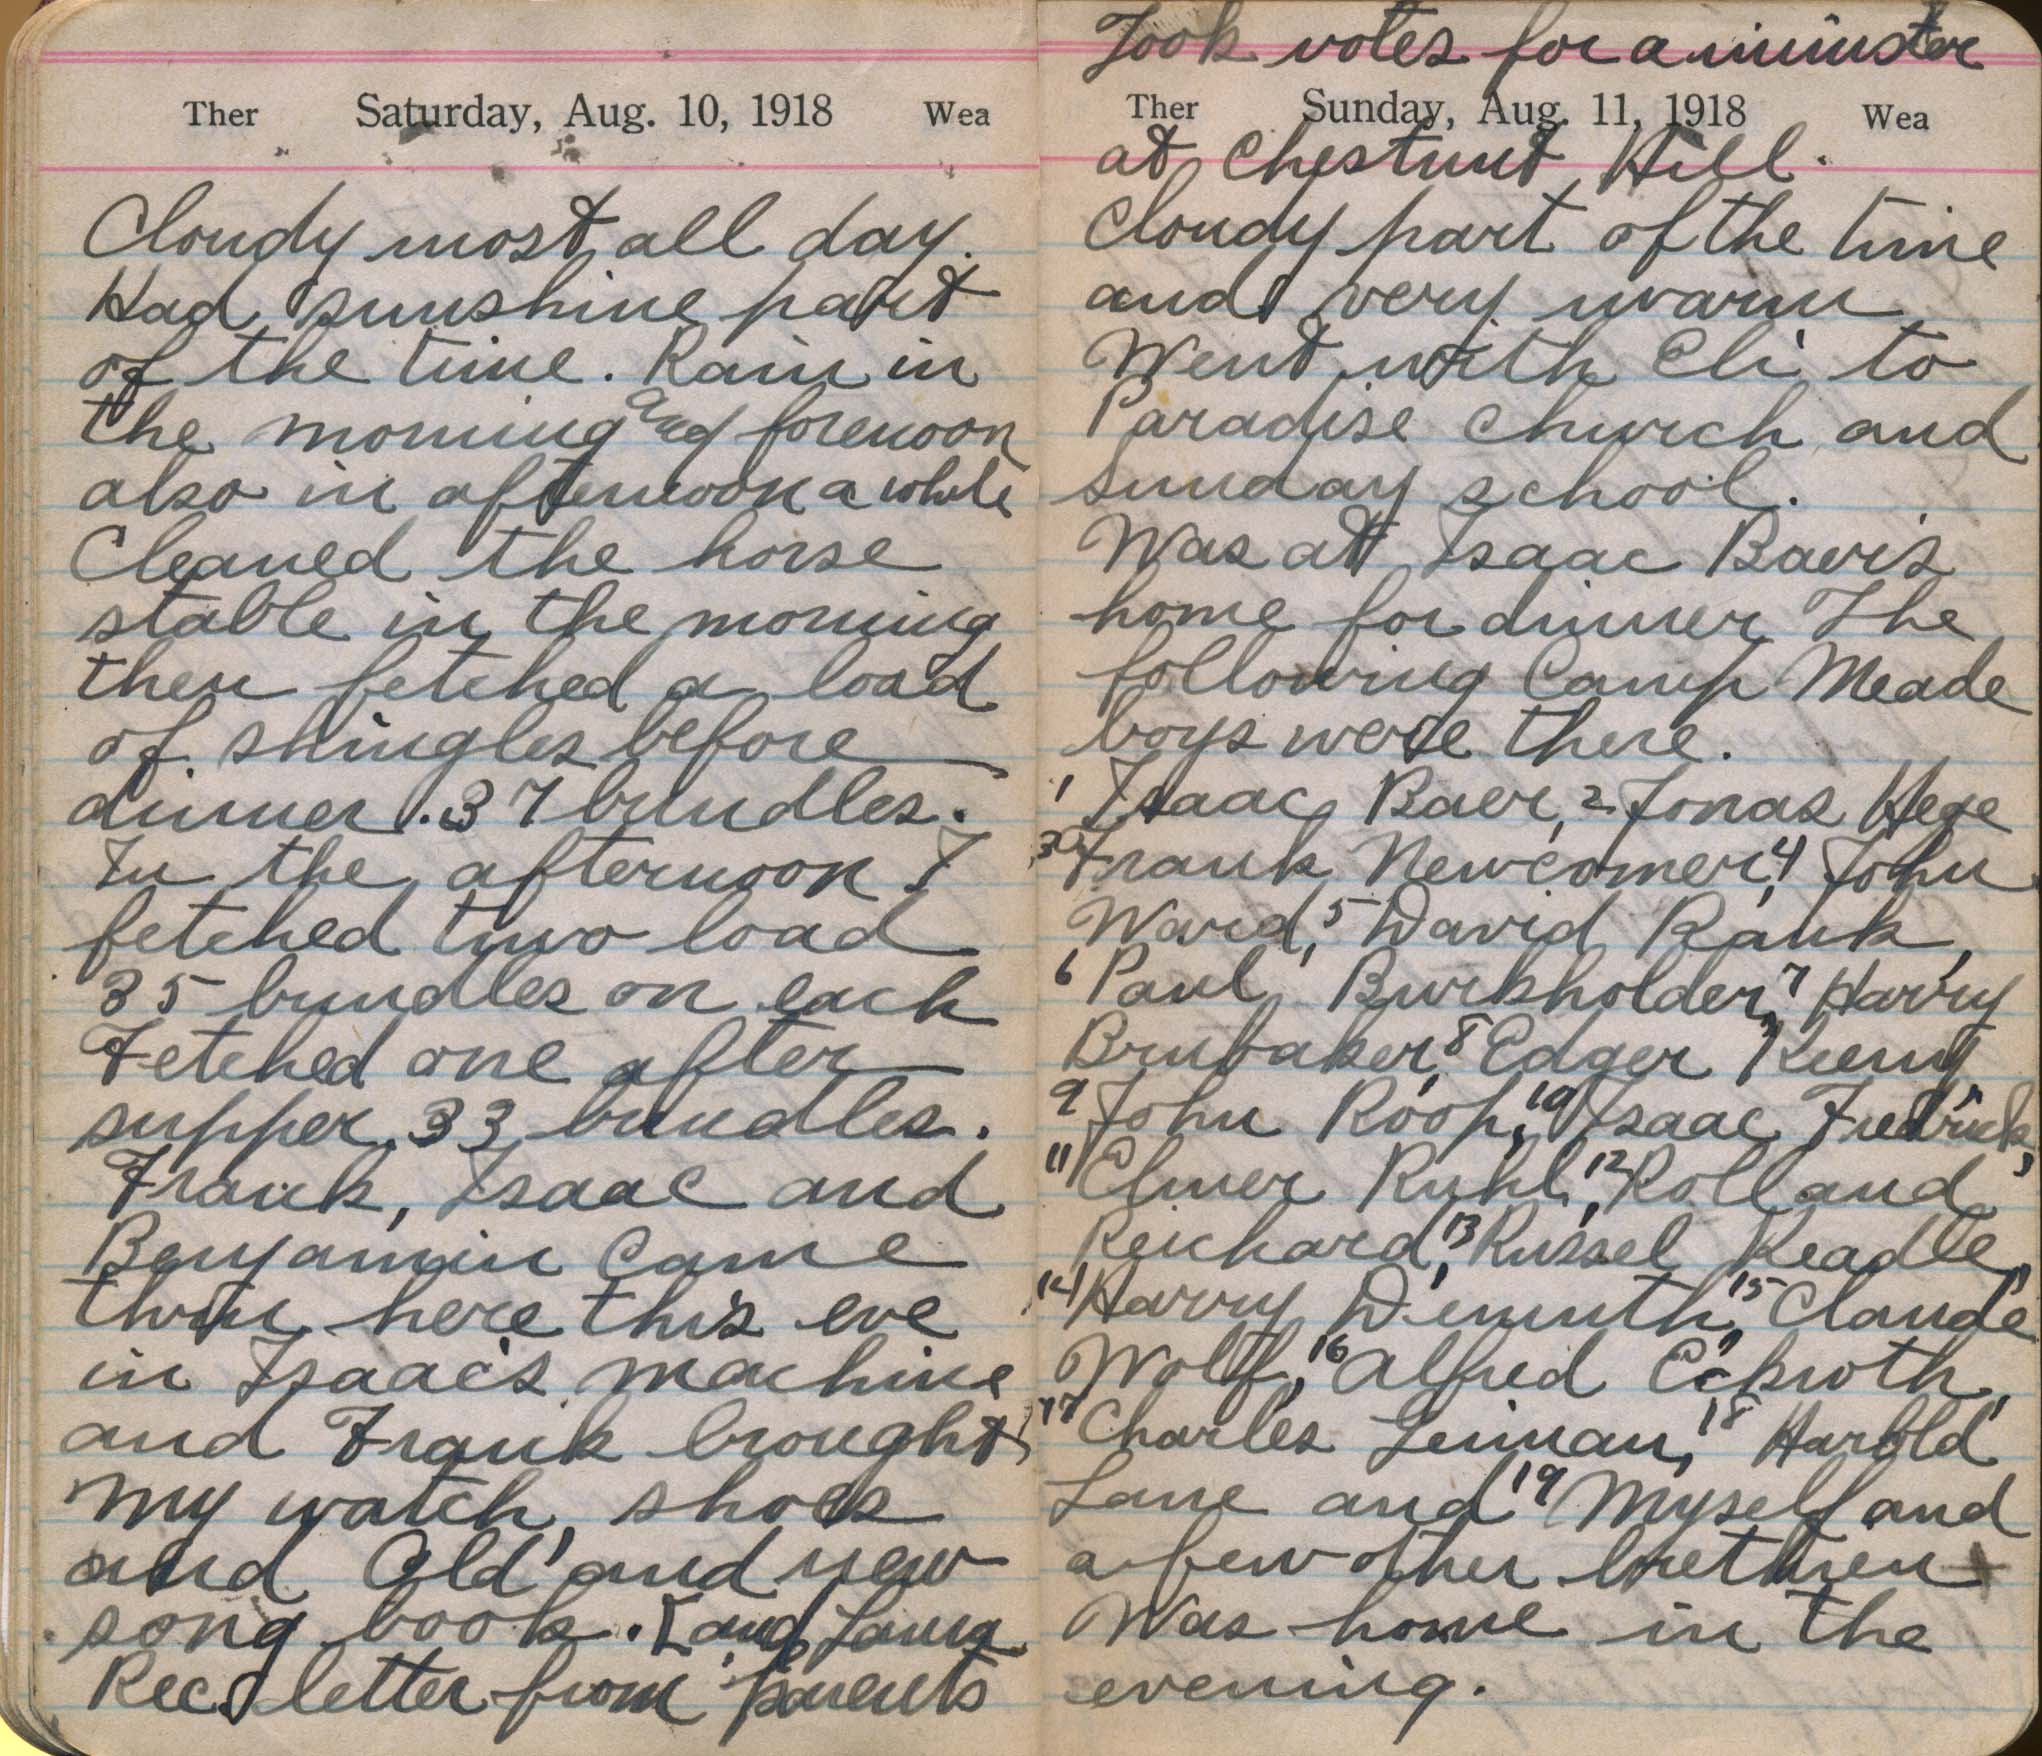 Ther Saturday, Aug. 10, 1918 Wea
Cloudy most all day.
Had sunshine part
of the time. Rain in
the morning and forenoon
also in afternoon a while
Cleaned the horse
stable in the morning
then fetched a load
of shingles before
dinner. 37 bundles.
In the afternoon I
fetched two load
35 bundles on each
Fetched one after
supper, 33 bundles.
Frank, Isaac and
Benyamin came
thru here this eve
in Isaac's machine
and Frank brought
my watch, shoes
and Old and new
song book. [and
Recd letter from parents
Took votes for a minister
Ther Sunday, Aug. 11, 1918 Wea
at Chestnut Hill.
Cloudy part of the time
and very warm
Went with Eli to
Paradise church and
Sunday school.
Was at Isaac Baer's
home for dinner The
following Camp Meade
boys were there.
1 Isaac Baer, 2 Jonas Hege
3 Frank Newcomer, 4 John
Ward, 5 David Rank,
6 Paul Burkholder, 7 Harry
Brubaker, 8 Edger Keeny
9 John Roop, 10 Isaac Fredrick,
11 Elmer Ruhl, 12 Rolland
Reichard, 13 Russel Keadle,
14 Harry Demuth, 15 Claude
Wolff, 16 Alfred Eckroth,
17 Charles Leiman, 18 Harold
Lane and 19 Myself and
a few other brethren
Was home in the
evening.